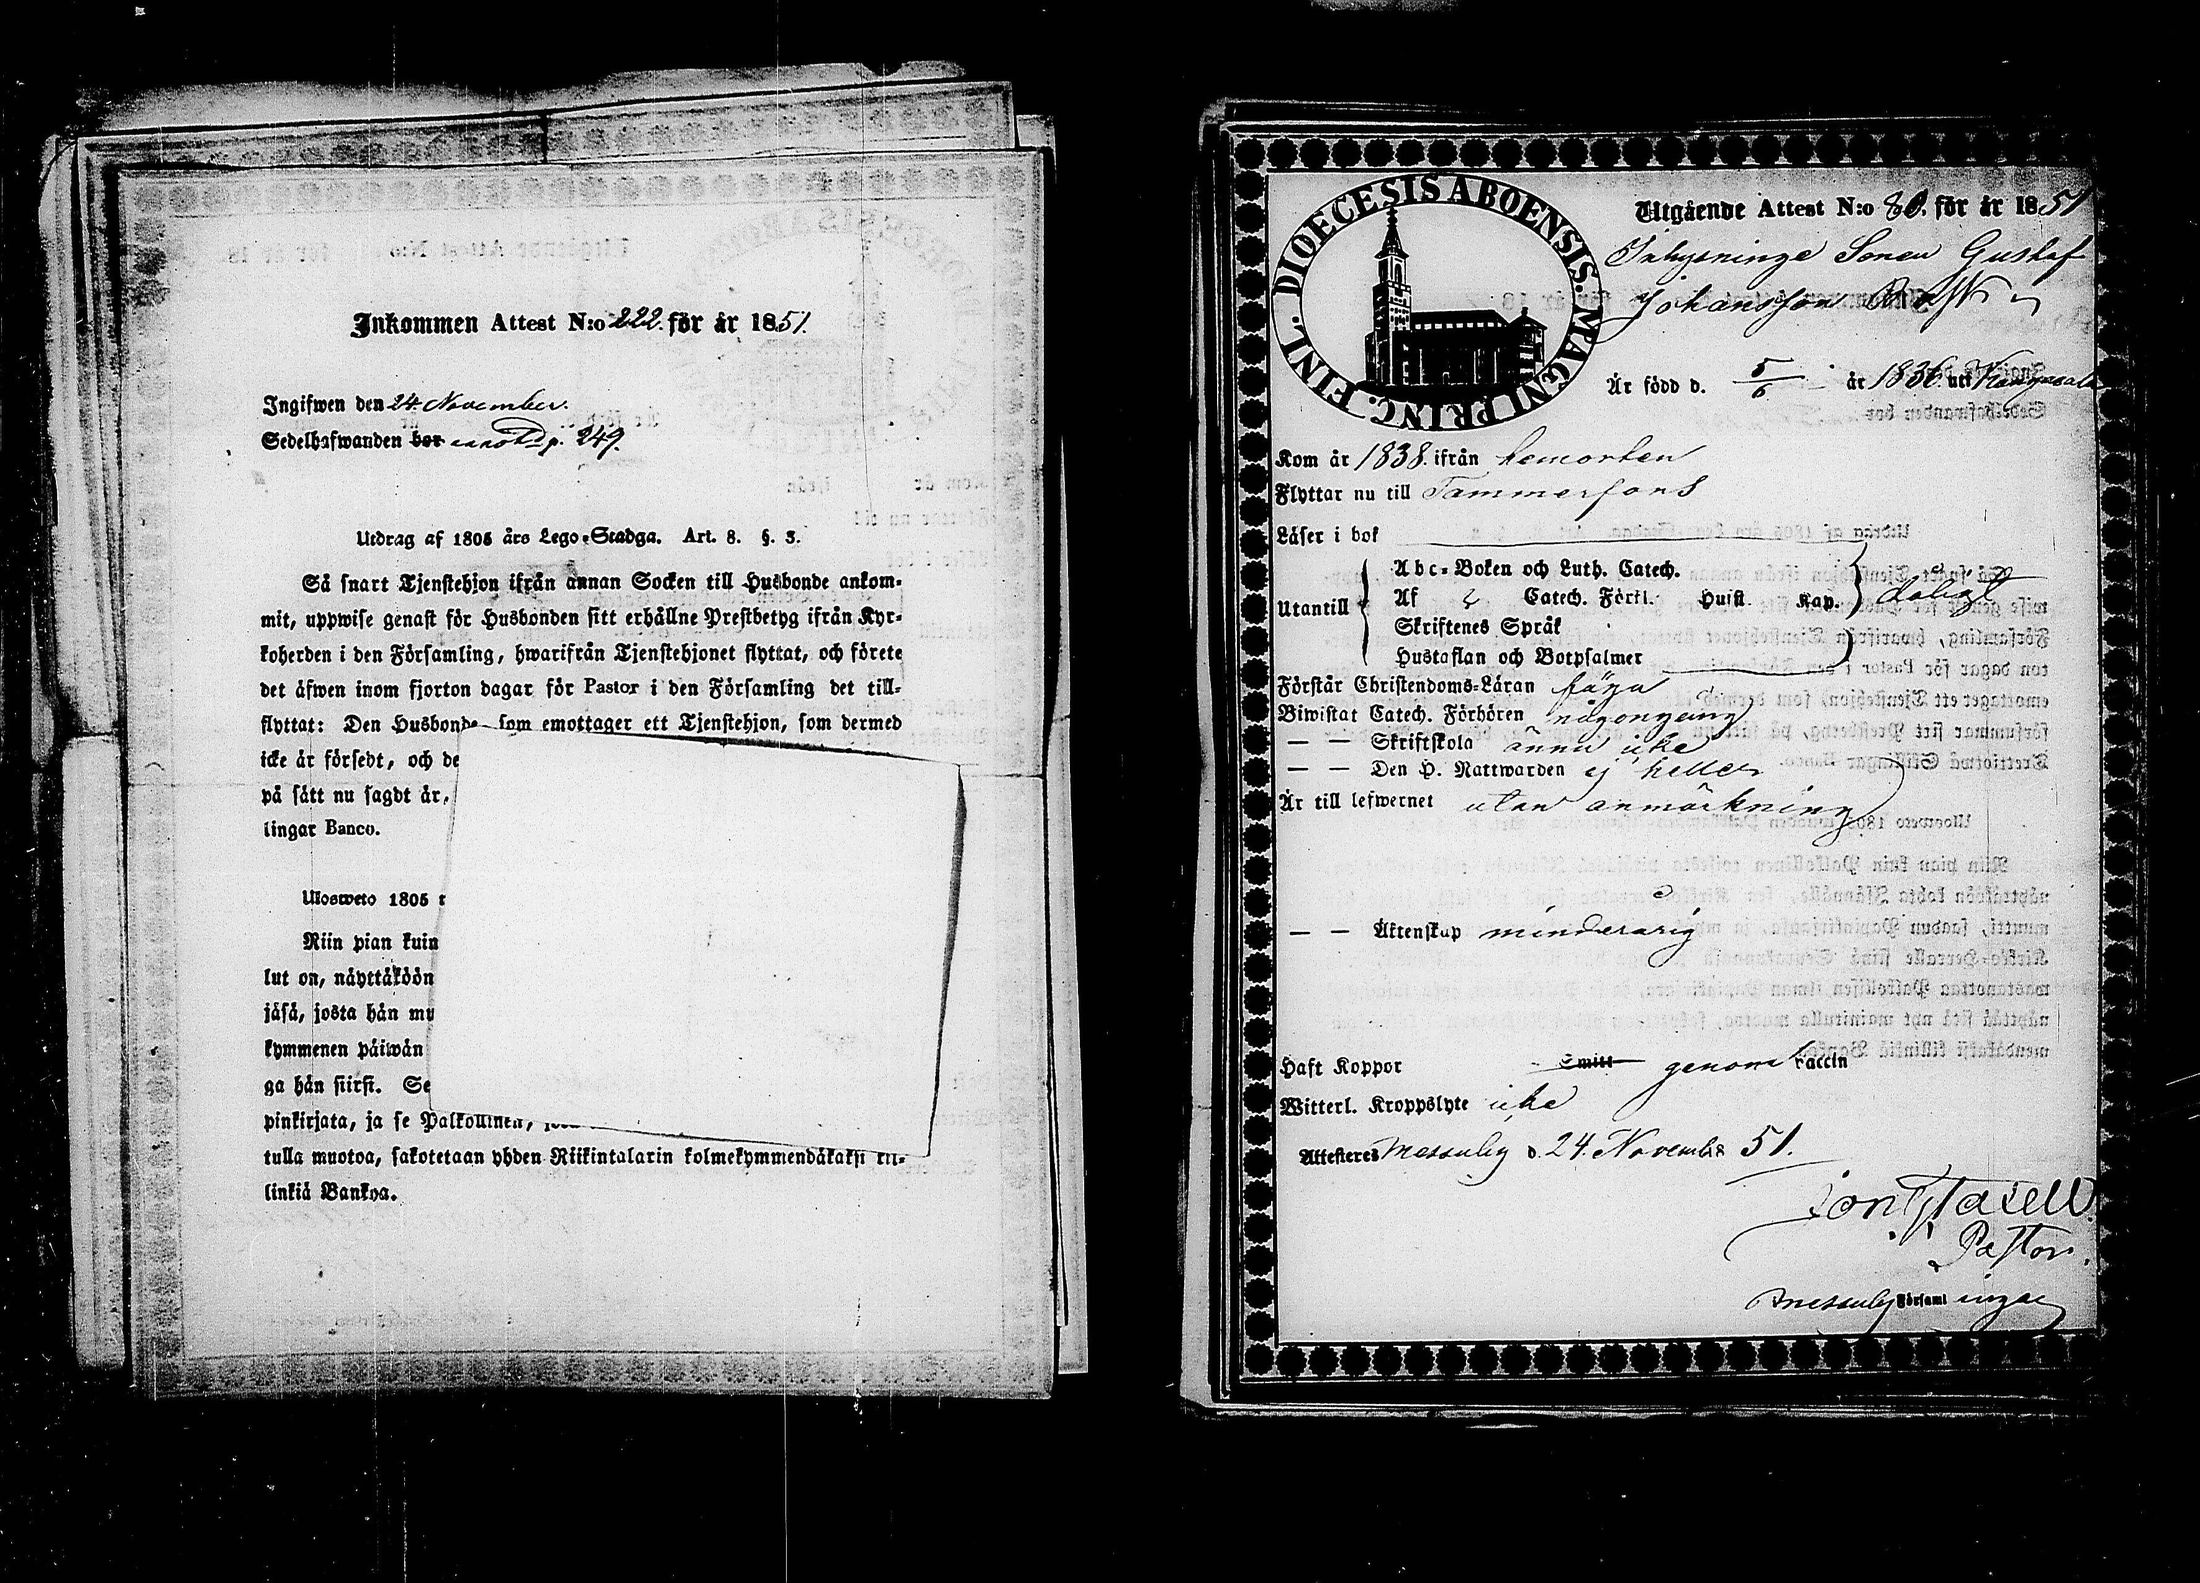 Inkommen Attest N:o 222. för år 1851.
Ingifwen den 24. November.
Sedelhafwanden bor annot. p. 249.
Utdrag af 1805 års Lego-Stadga. Art. 8. §. 3.
Så snart Tjenstehjon ifrån annan Socken till Husbonde ankom-
mit, uppwise genast för Husbonden sitt erhållne Prestbetyg ifrån Kyr-
koherden i den Församling, hwarifrån Tjenstehjonet flyttat, och förete
det äfwen inom fjorton dagar för Pastor i den Församling det till-
flyttat: Den Husbonde som emottager ett Tjenstehjon, som dermed
icke är försedt, och de
på sätt nu sagdt är,
lingar Banco.
Ulosweto 1805
Niin pian kuin
lut on, näyttäköön
jäsä, josta hän mu
kymmenen päiwän
ga hän siirsi. Se
pinkirjata, ja se Palkollinen,
tulla muotoa, sakotetaan yhden Riikintalarin kolmekymmendäkaksi kil-
linkiä Bankoa.
DIOECESIS ABOENSIS. MAGNI PRINC. FINL.
Utgående Attest N:o 80. för år 1851
Inhysninge Sonen Gustaf
Johansson
Är född d. 5/6 år 1836 uti Kangasala
Kom år 1838. ifrån hemorten
Flyttar nu till Tammerfors
Läser i bok
Abc-Boken och Luth. Catech.
Utantill Af Catech. Förkl. Husst. Kap. dåligt
Skriftenes Språk
Hustaflan och Botpsalmer
Förstår Christendoms-Läran föga
Biwistat Catech. Förhören någongång
— — Skriftskola ännu icke
— — Den H. Nattwarden ej heller
Är till lefwernet utan anmärkning
— — Äktenskap minderårig
Haft Koppor Smitt genom Vaccin
Witterl. Kroppslyte icke
Attesteres Messuby d. 24. November 1851.
Pastor.
Messuby Församlingar